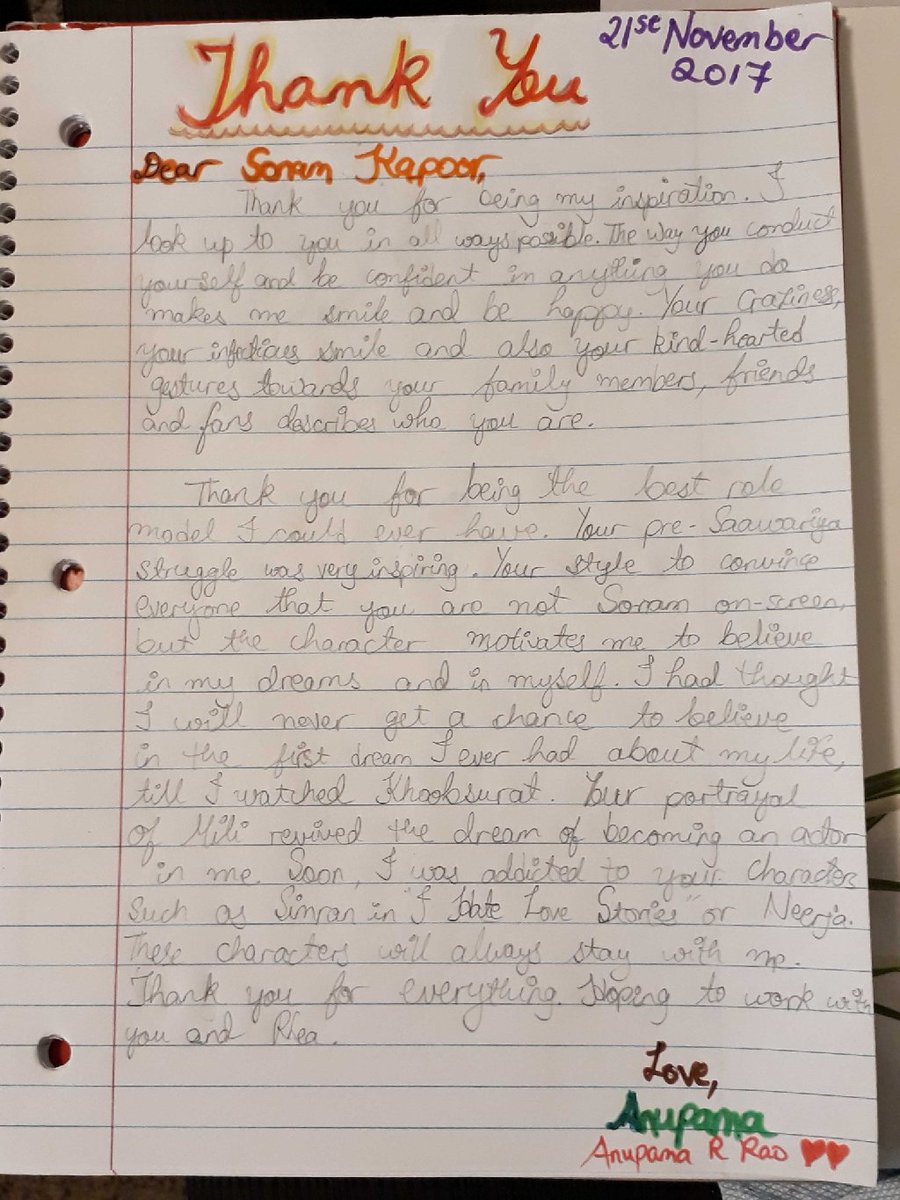 Thank You
21se November
2017
Dear Sonam Kapoor,
Thank you for being my inspiration. I
look up to you in all ways possible. The way you conduct
yourself and be confident in anything you do
makes me smile and be happy. Your Craziness,
your infectious smile and also your kind-hearted
gestures towards your family members, friends
and fans describes who you are.
Thank you for being the best role
model I could ever have. Your pre-Saawariya
struggle was very inspiring. Your style to convince
everyone that you are not Sonam on-screen,
but the character motivates me to believe
in my dreams and in myself. I had thought
I will never get a chance to believe
in the first dream I ever had about my life,
till I watched Khoobsurat. Your portrayal
of Mili revived the dream of becoming an actor
in me. Soon, I was addicted to your Character
Such as Simran in "I Hate Love Stories" or Neerja.
These characters will always stay with me.
Thank you for everything. Hoping to work with
you and Rhea.
Love,
Anupama
Anupama R Rao